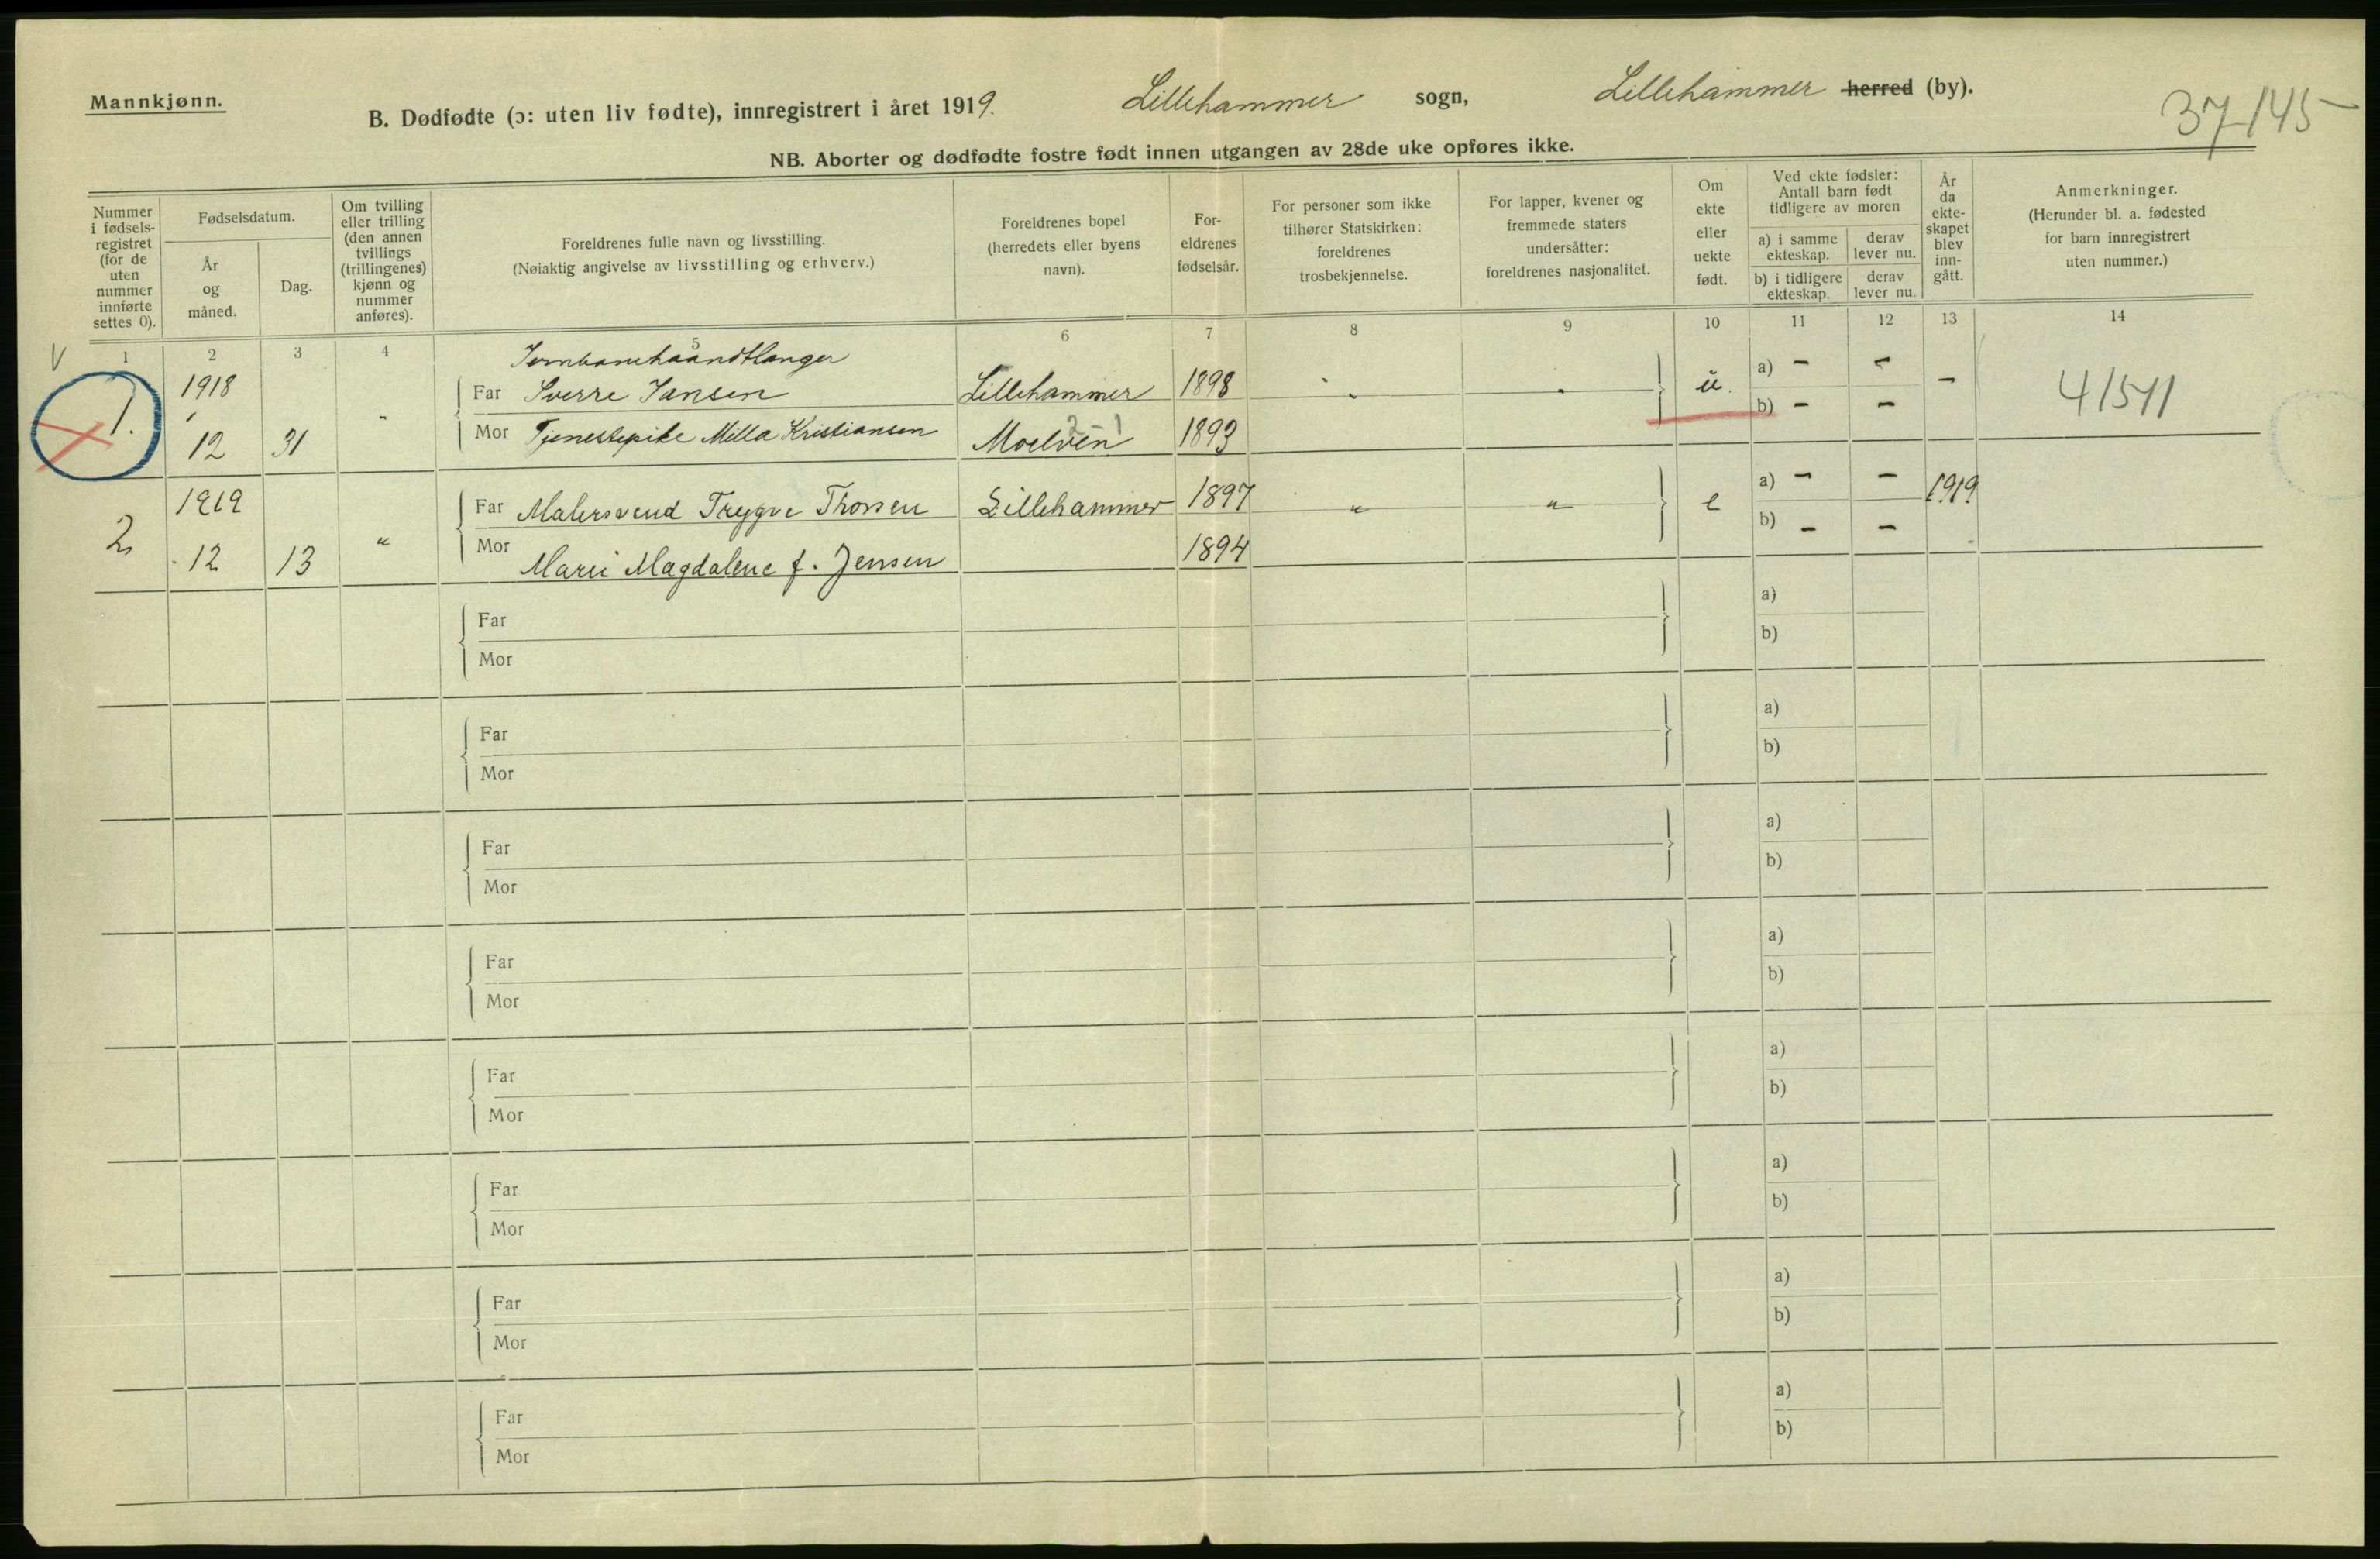 Mannkjønn.
B. Dødfødte (ɔ: uten liv fødte), innregistrert i året 1919. Lillehammer sogn, Lillehammer herred (by).
37145
NB. Aborter og dødfødte fostre født innen utgangen av 28de uke opføres ikke.
Nummer i fødsels-registret (for de uten nummer innførte settes 0).
Fødselsdatum.
År og måned.
Dag.
Om tvilling eller trilling (den annen tvillings (trillingenes) kjønn og nummer anføres).
Foreldrenes fulle navn og livsstilling. (Nøiaktig angivelse av livsstilling og erhverv.)
Foreldrenes bopel (herredets eller byens navn).
For-eldrenes fødselsår.
For personer som ikke tilhører Statskirken: foreldrenes trosbekjennelse.
For lapper, kvener og fremmede staters undersåtter: foreldrenes nasjonalitet.
Om ekte eller uekte født.
Ved ekte fødsler: Antall barn født tidligere av moren
a) i samme ekteskap. derav lever nu.
b) i tidligere ekteskap. derav lever nu.
År da ekte-skapet blev inn-gått.
Anmerkninger. (Herunder bl. a. fødested for barn innregistrert uten nummer.)
1 2 3 4 5 6 7 8 9 10 11 12 13 14
V
Jernbanehaandtlanger
1. 1918 Far Sverre Jansen Lillehammer 1898 " " u. a) – – – 41511
12 31 " Mor Tjenestepike Milla Kristiansen Moelven 2-1 1893 b) – –
2 1919 Far Malersvend Trygve Thorsen Lillehammer 1897 " " e a) – – 1919
12 13 " Mor Marie Magdalene f. Jensen 1894 b) – –
Far a)
Mor b)
Far a)
Mor b)
Far a)
Mor b)
Far a)
Mor b)
Far a)
Mor b)
Far a)
Mor b)
Far a)
Mor b)
Far a)
Mor b)